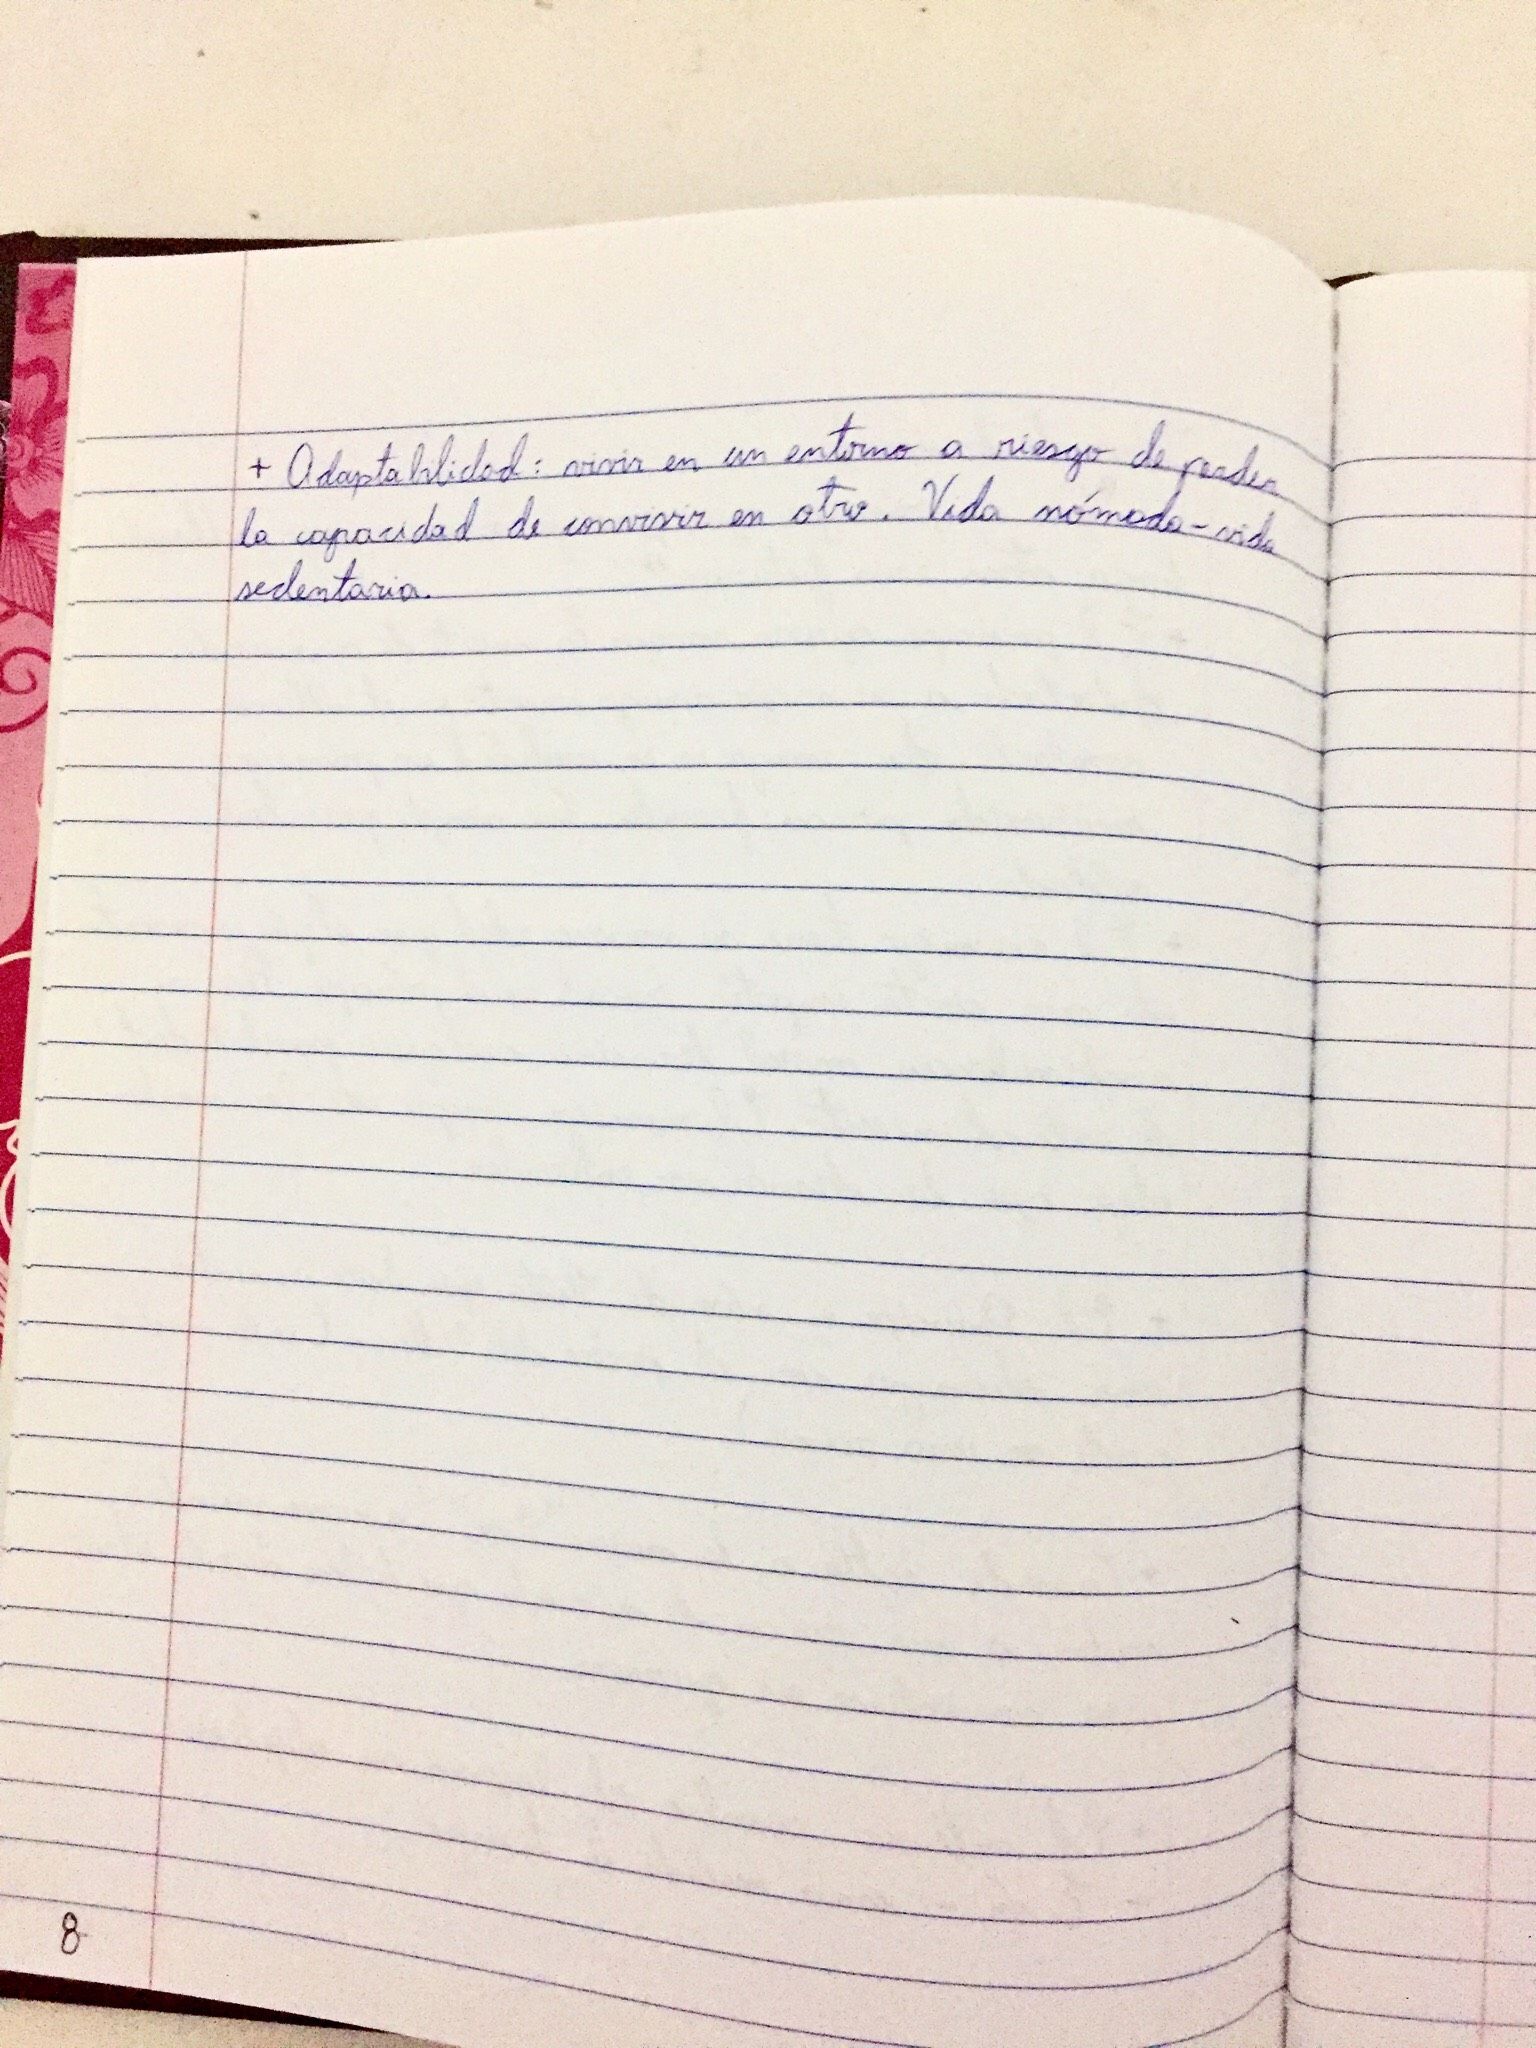 + Adaptabilidad: vivir en un entorno a riesgo de perder
la capacidad de convivir en otro. Vida nómada-vida
sedentaria.
8